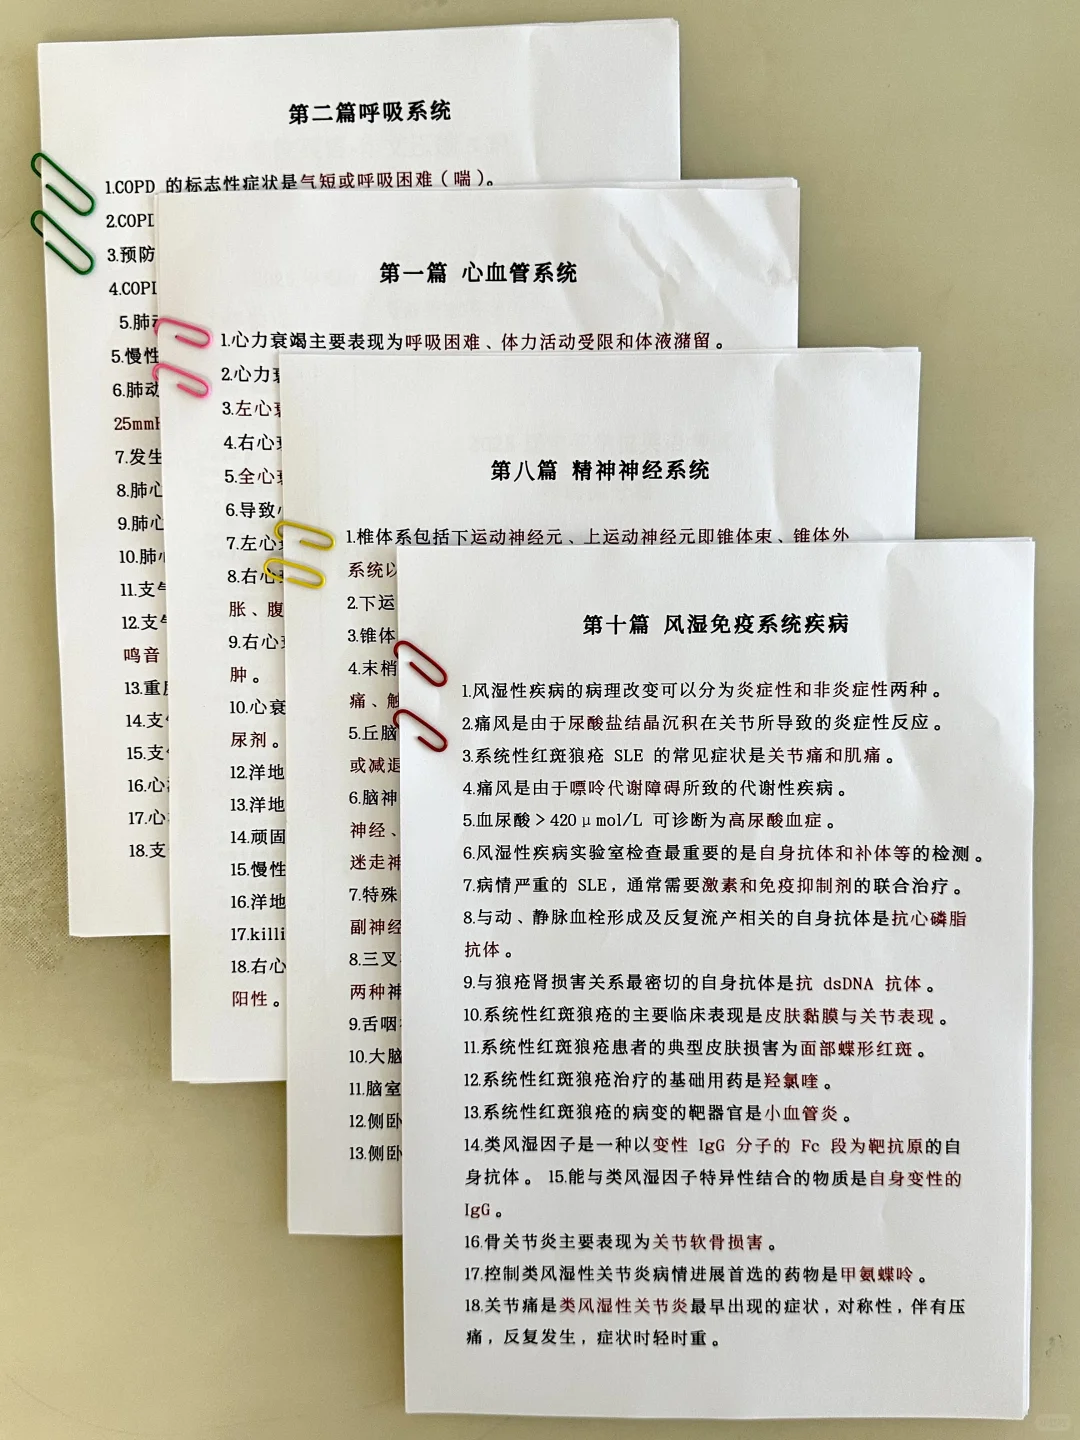 第二篇呼吸系统
1.COPD 的标志性症状是气短或呼吸困难（喘）。
2.COPD
3.预防
4.COPD
5.肺动
5.慢性
6.肺动
25mmH
7.发生
8.肺心
9.肺心
10.肺心
11.支气
12.支气
鸣音
13.重度
14.支气
15.支气
16.心
17.心
18.支
第一篇 心血管系统
1.心力衰竭主要表现为呼吸困难、体力活动受限和体液潴留。
2.心力衰
3.左心衰
4.右心衰
5.全心衰
6.导致心
7.左心衰
8.右心衰
胀、腹
9.右心衰
肿。
10.心衰
尿剂。
12.洋地
13.洋地
14.顽固
15.慢性
16.洋地
17.killi
18.右心
阳性。
第八篇 精神神经系统
1.椎体系包括下运动神经元、上运动神经元即锥体束、锥体外
系统以
2.下运
3.锥体
4.末梢
痛、触
5.丘脑
或减退
6.脑神
神经、
迷走神
7.特殊
副神经
8.三叉
两种神
9.舌咽
10.大脑
11.脑室
12.侧卧
13.侧卧
第十篇 风湿免疫系统疾病
1.风湿性疾病的病理改变可以分为炎症性和非炎症性两种。
2.痛风是由于尿酸盐结晶沉积在关节所导致的炎症性反应。
3.系统性红斑狼疮 SLE 的常见症状是关节痛和肌痛。
4.痛风是由于嘌呤代谢障碍所致的代谢性疾病。
5.血尿酸＞420μmol/L 可诊断为高尿酸血症。
6.风湿性疾病实验室检查最重要的是自身抗体和补体等的检测。
7.病情严重的 SLE，通常需要激素和免疫抑制剂的联合治疗。
8.与动、静脉血栓形成及反复流产相关的自身抗体是抗心磷脂
抗体。
9.与狼疮肾损害关系最密切的自身抗体是抗 dsDNA 抗体。
10.系统性红斑狼疮的主要临床表现是皮肤黏膜与关节表现。
11.系统性红斑狼疮患者的典型皮肤损害为面部蝶形红斑。
12.系统性红斑狼疮治疗的基础用药是羟氯喹。
13.系统性红斑狼疮的病变的靶器官是小血管炎。
14.类风湿因子是一种以变性 IgG 分子的 Fc 段为靶抗原的自
身抗体。 15.能与类风湿因子特异性结合的物质是自身变性的
IgG。
16.骨关节炎主要表现为关节软骨损害。
17.控制类风湿性关节炎病情进展首选的药物是甲氨蝶呤。
18.关节痛是类风湿性关节炎最早出现的症状，对称性，伴有压
痛，反复发生，症状时轻时重。